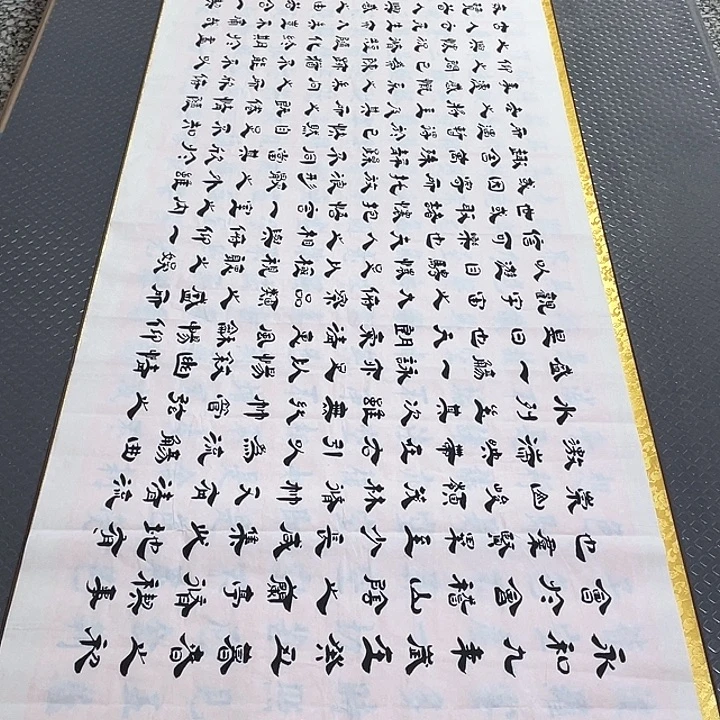 永和九年歲在癸丑暮春之初
會於會稽山陰之蘭亭脩禊事
也羣賢畢至少長咸集此地有
崇山峻領茂林脩竹又有清流
激湍映帶左右引以為流觴曲
水列坐其次雖無絲竹管弦之
盛一觴一詠亦足以暢敘幽情
是日也天朗氣清惠風和暢仰
觀宇宙之大俯察品類之盛所
以遊目騁懷足以極視聽之娛
信可樂也夫人之相與俯仰一
世或取諸懷抱悟言一室之內
或因寄所託放浪形骸之外雖
趣舍萬殊靜躁不同當其欣於
所遇暫得於己快然自足不知
老之將至及其所之既惓情隨
事遷感慨係之矣向之所欣俛
仰之間已為陳跡猶不能不以
之興懷況脩短隨化終期於盡
古人云死生亦大矣豈不痛哉